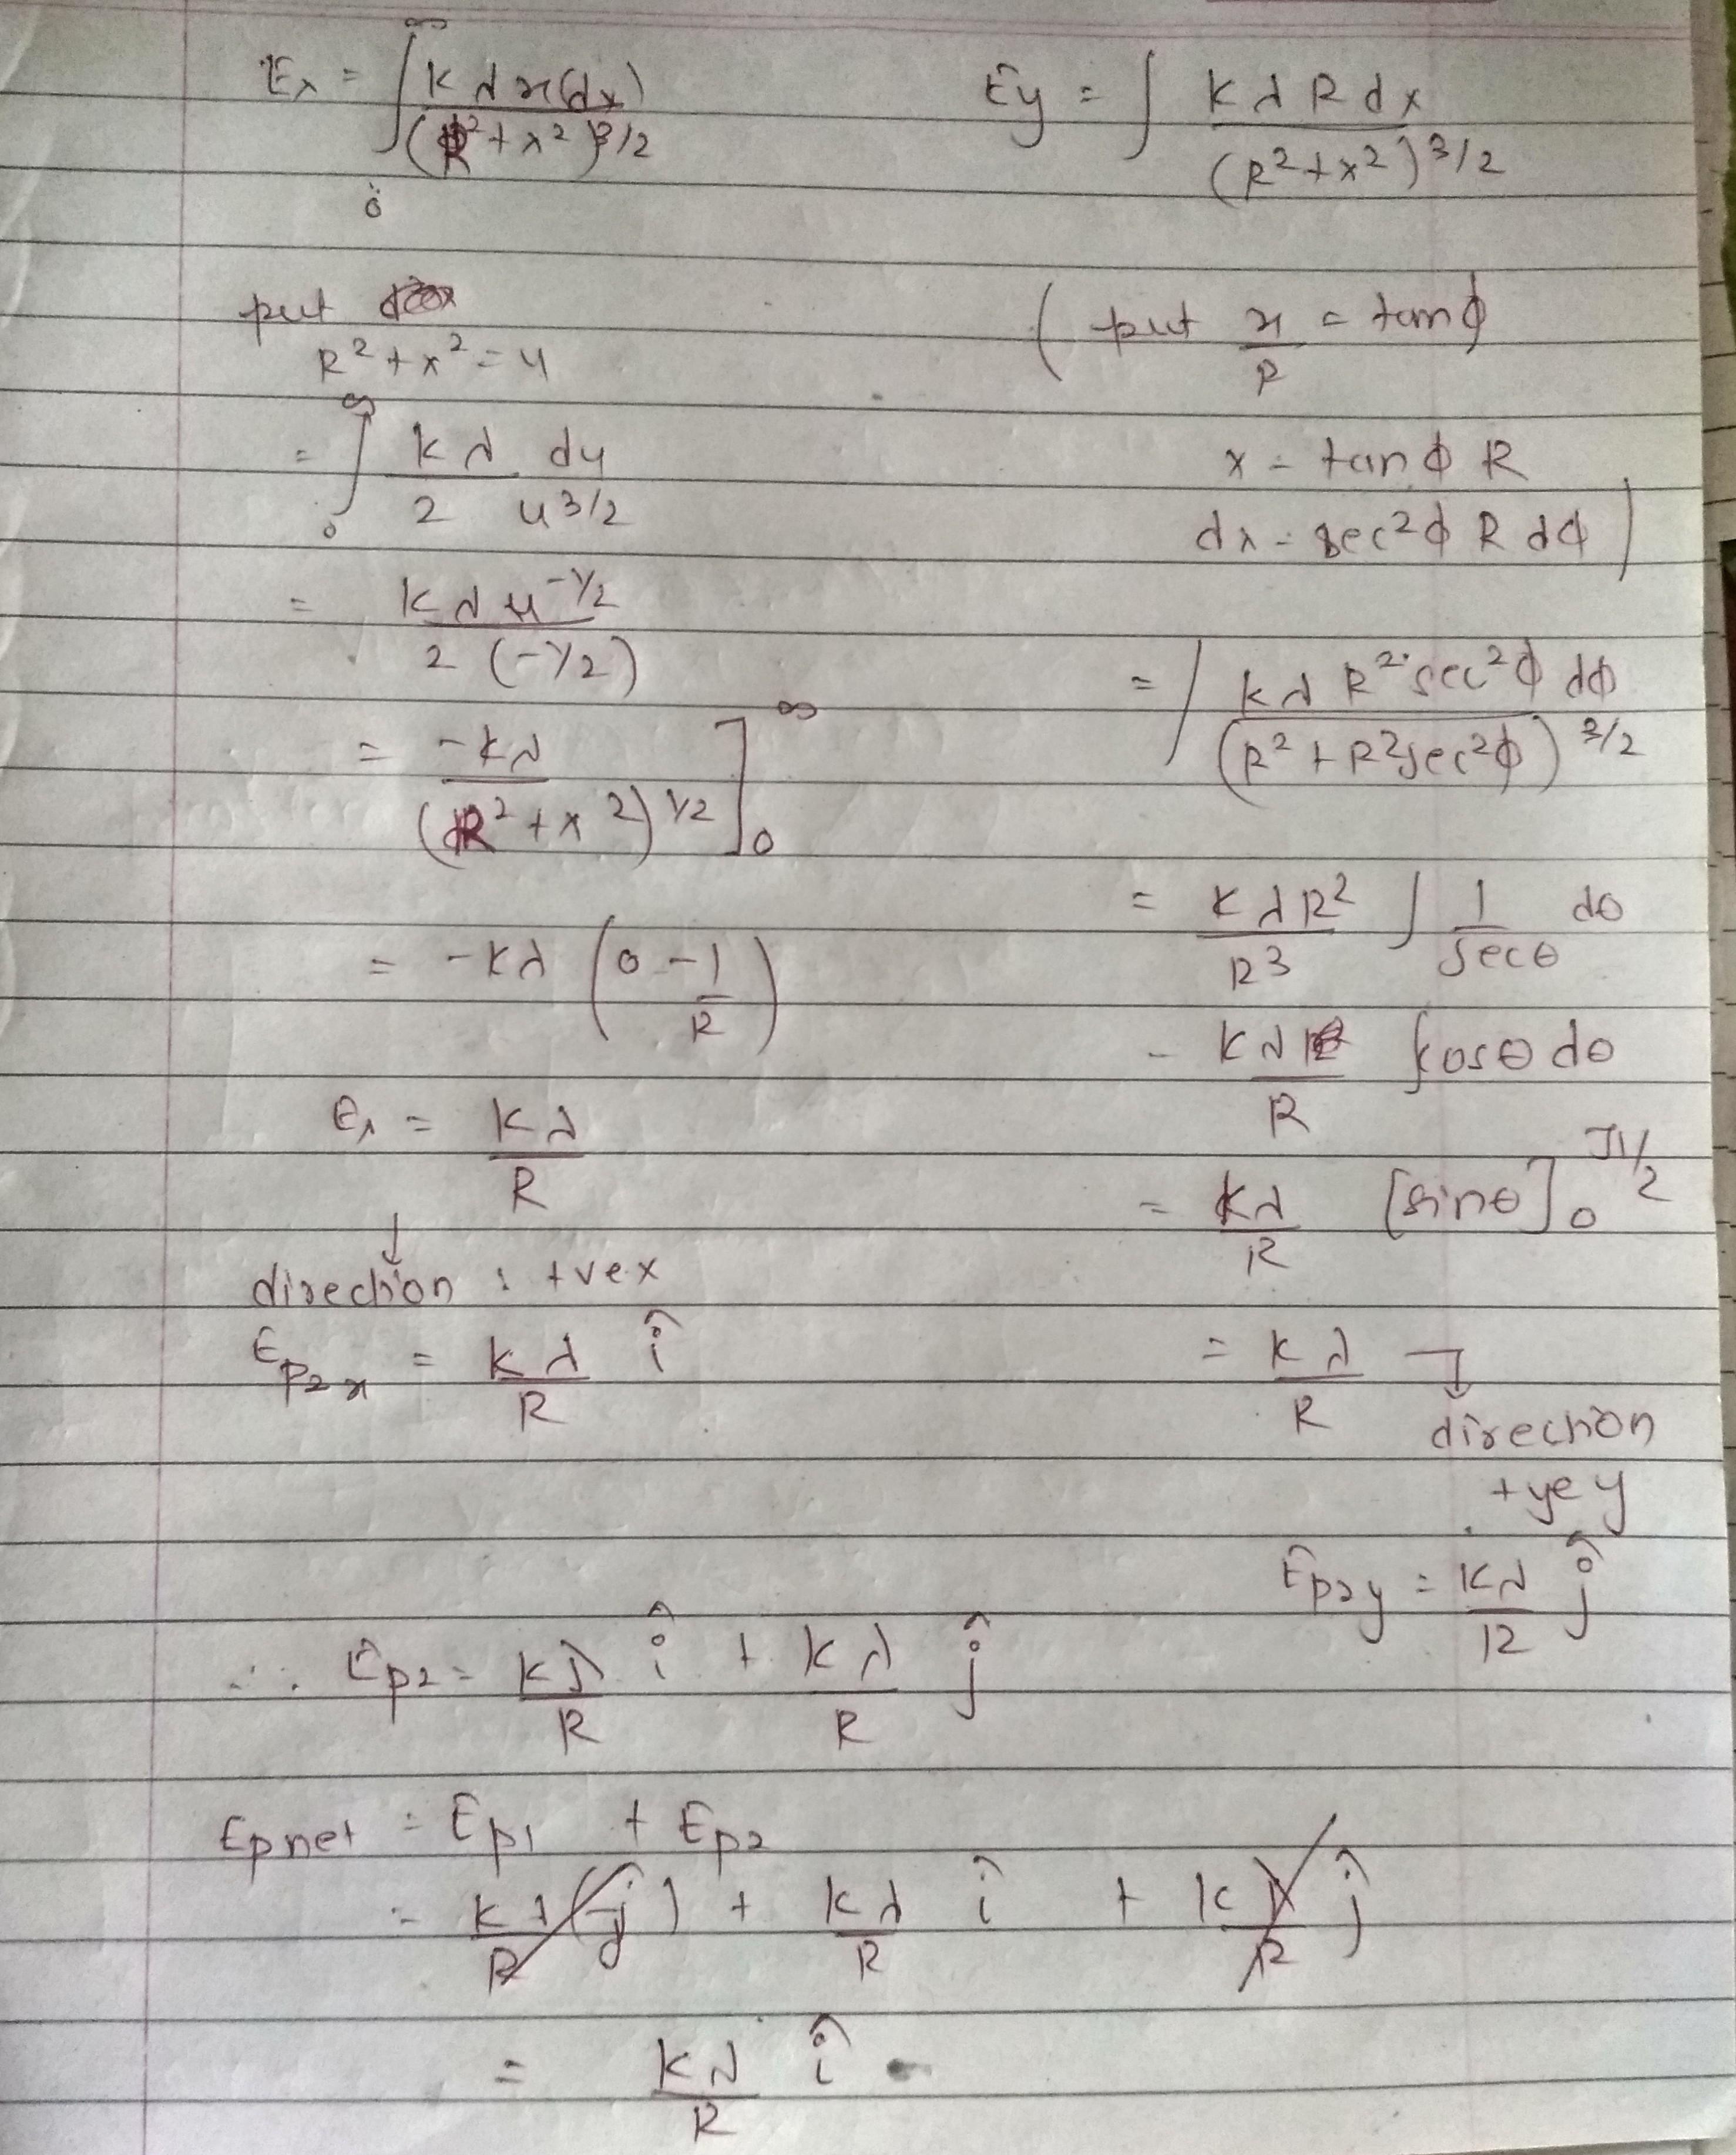 Ex = ∫₀^∞ Kλx(dx) / (R²+x²)^3/2
put
R²+x² = u
= ∫₀^∞ Kλ/2 du/u^3/2
= Kλ u^-1/2 / 2(-1/2)
= -Kλ / (R²+x²)^1/2 ]₀^∞
= -Kλ (0 - 1/R)
Ex = Kλ/R
↓
direction : +ve x
Ep2x = Kλ/R î
Ey = ∫ KλR dx / (R²+x²)^3/2
( put x/R = tanϕ
x = tanϕ R
dx = sec²ϕ R dϕ )
= ∫ Kλ R² sec²ϕ dϕ / (R²+R²sec²ϕ)^3/2
= KλR²/R³ ∫ 1/secθ dθ
= Kλ/R ∫cosθ dθ
= Kλ/R [sinθ]₀^π/2
= Kλ/R ↴
direction
+ve y
Ep2y = Kλ/R ĵ
∴ Ep2 = Kλ/R î + Kλ/R ĵ
Epnet = Ep1 + Ep2
= Kλ/R (-ĵ) + Kλ/R î + Kλ/R ĵ
= Kλ/R î